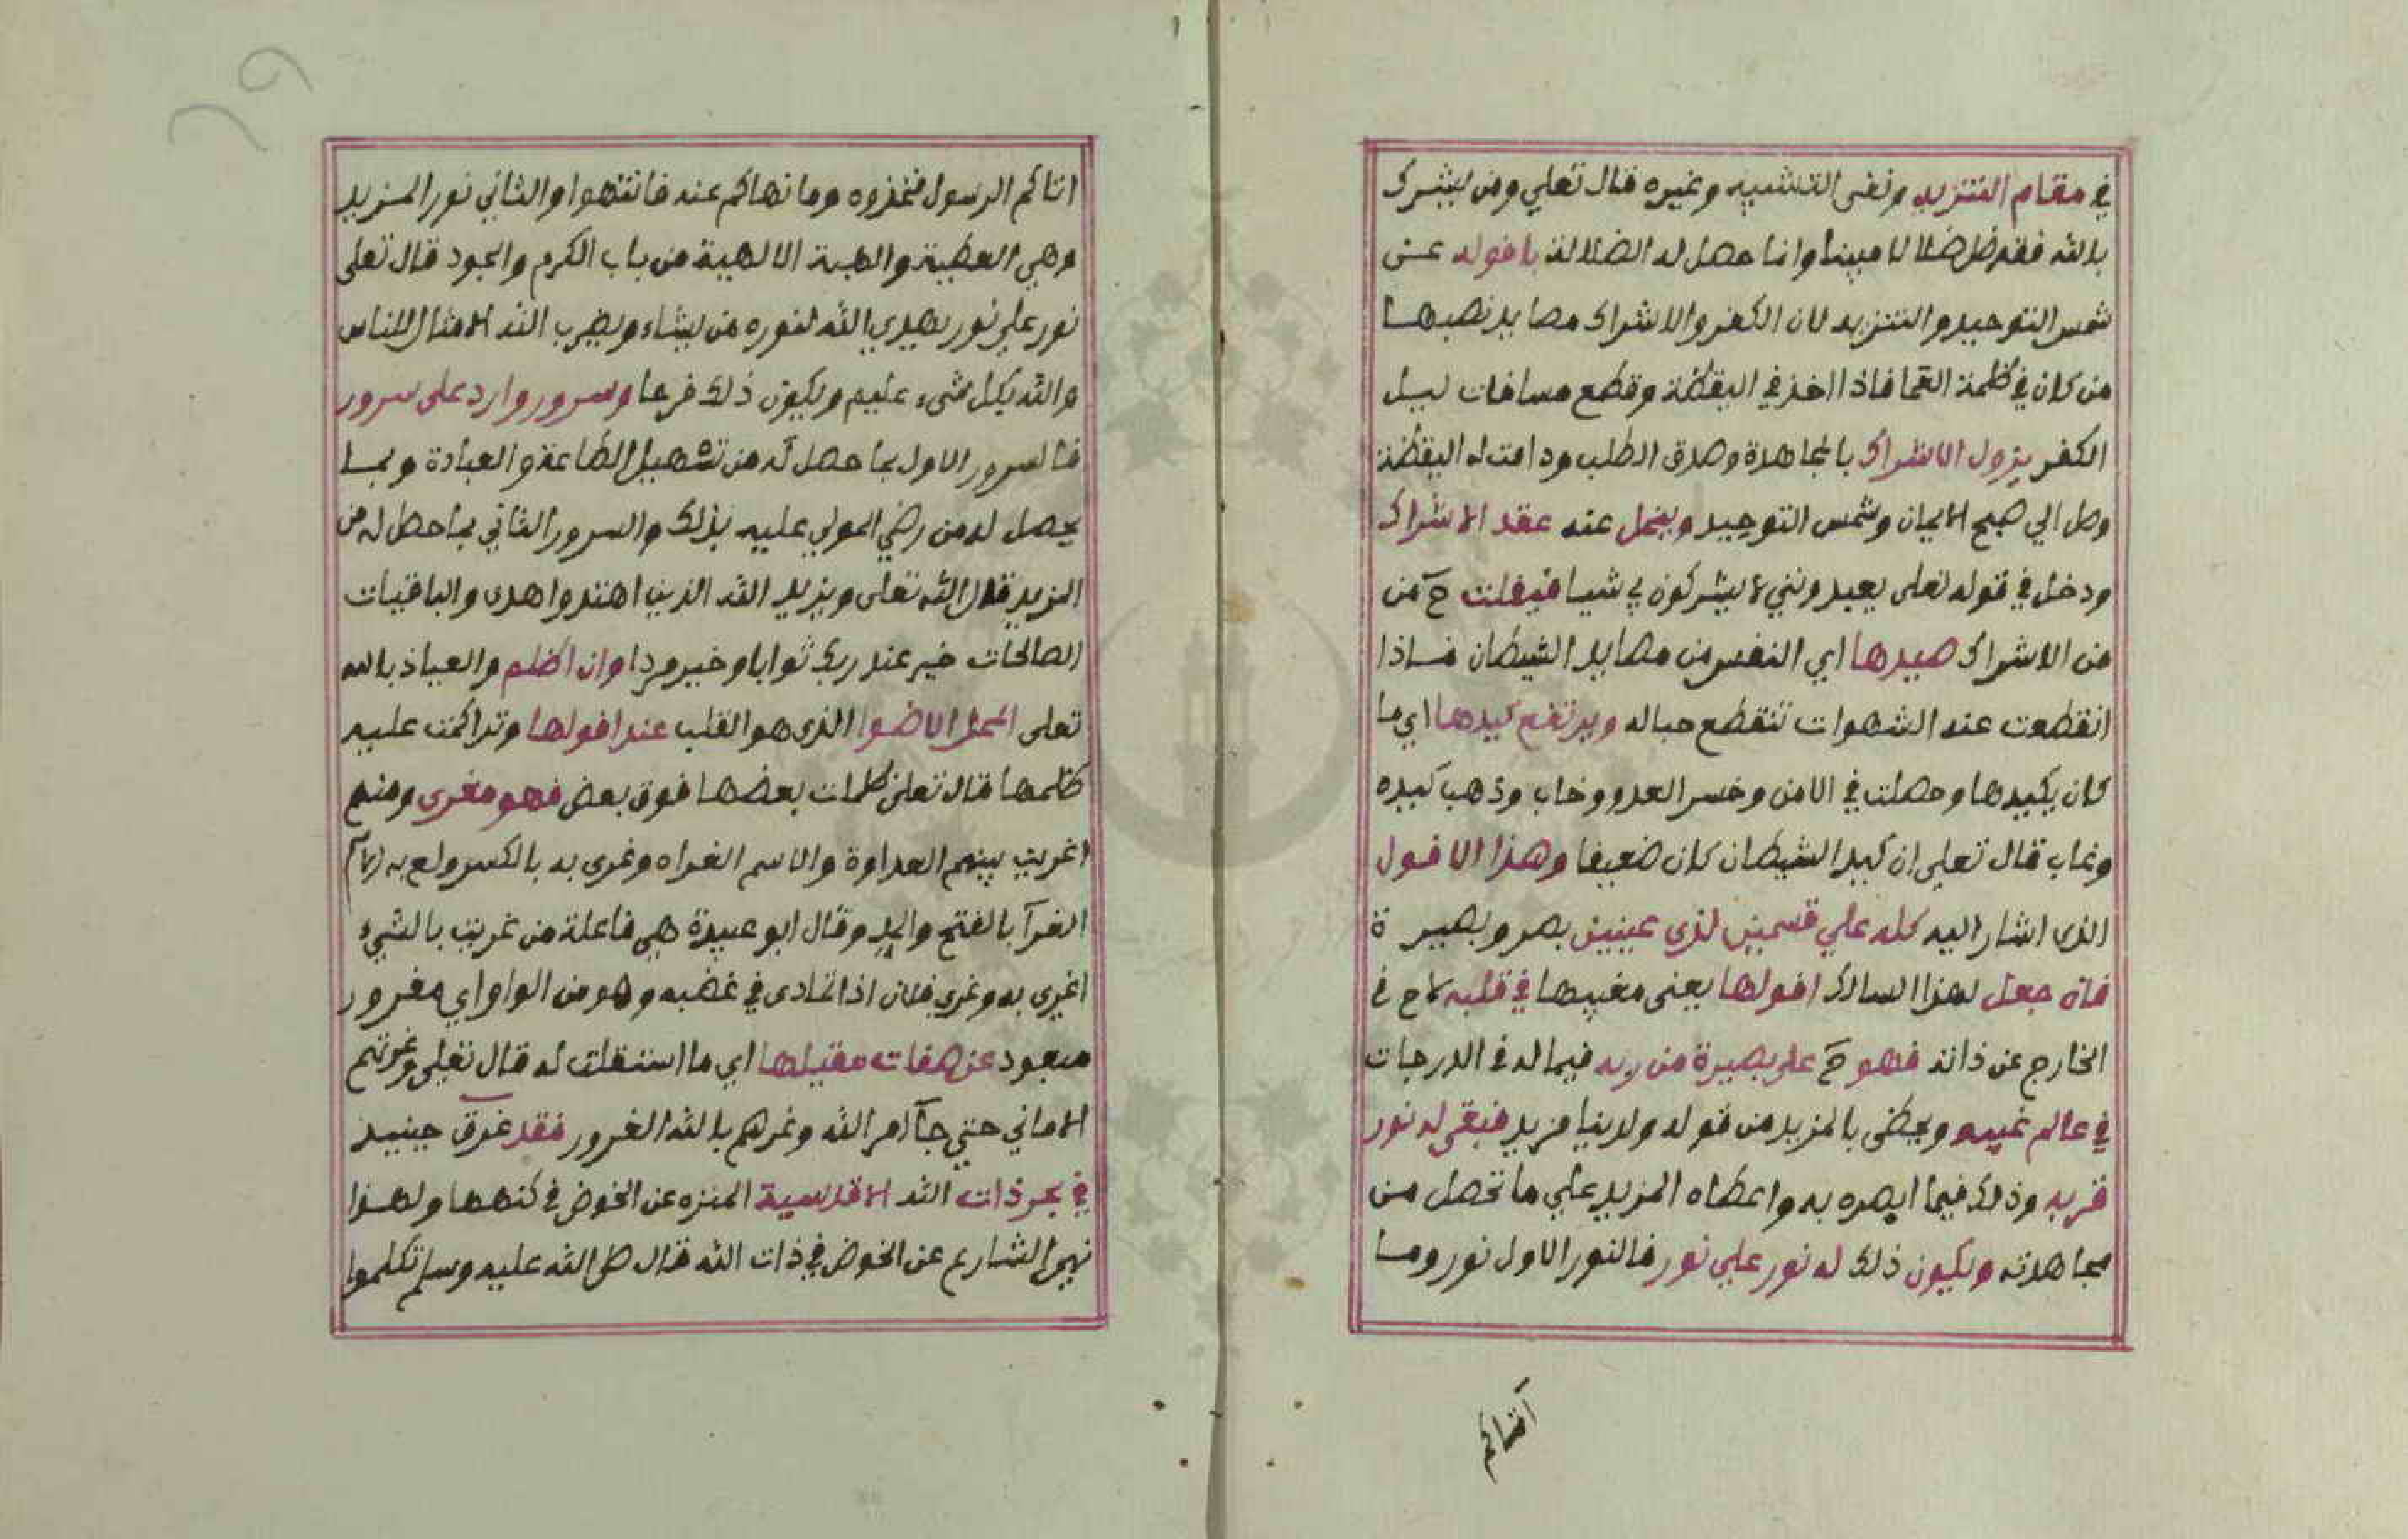 في مقام التنزيه ونفى التشبيه وغيره قال تعلي ومن يشرك
بالله فقد ضل ضلالا مبينا وانما حصل له الضلالة بافوله عن
شمس التوحيد والتنزيه لان الكفر والاشراك مصايد نصبها
من كان في ظلمة العما فاذا اخذ في اليقظة وقطع مسافات ليل
الكفر يزول الاشراك بالمجاهدة وصدق الطلب ودامت له اليقظة
وصل الي صبح الايمان وشمس التوحيد وينحل عنه عقد الاشراك
ودخل في قوله تعلى يعبدونني لا يشركون بي شيا فيفلت ح من
من الاشراك صيدها اي النفس من مصايد الشيطان فاذا
انقطعت عنه الشهوات تنقطع حباله ويرتفع كيدها اي ما
كان يكيدها وحصلت في الامن وخسر العدو وخاب وذهب كيده
وغاب قال تعلي ان كيد الشيطان كان ضعيفا وهذا الافول
الذى اشار اليه كله علي قسمين لذى عينين بصر وبصيرة
فان جعل لهذا السالك افولها يعنى مغيبها في قلبه لاح في
الخارج عن ذاته فهو ح على بصيرة من ربه فيما له في الدرجات
في عالم غيبه ويحظى بالمزيد من قوله ولدينا مزيد فبقى له نور
قربه وذلك فيما ابصره به واعطاه المزيد علي ما تحصل من
مجاهدته ويكون ذلك له نور علي نور فالنور الاول نور وما
آتاكم
اتاكم الرسول فخذوه وما نهاكم عنه فانتهوا والثاني نور المزيد
وهي العطية والهبة الالهية من باب الكرم والجود قال تعلى
نور علي نور يهدي الله لنوره من يشاء ويضرب الله الامثال للناس
والله بكل شىء عليم ويكون ذلك فرحا وسرور وارد على سرور
فالسرور الاول بما حصل له من تسهيل الطاعة والعبادة وبما
يحصل له من رضي المولي عليه بذلك والسرور الثاني بما حصل له من
المزيد قال الله تعلى ويزيد الله الذين اهتدوا هدى والباقيات
الصالحات خير عند ربك ثوابا وخير مردا وان اظلم والعياذ بالله
تعلى المحل الاضوا الذى هو القلب عند افولها وتراكمت عليه
ظلمها قال تعلى ظلمات بعضها فوق بعض فهو مغرى ومنه
اغريت بينهم العداوة والاسم الغراه وغرى به بالكسر ولع به
الغرآ بالفتح والمد وقال ابو عبيدة هي فاعلة من غريت بالشيء
اغرى به وغري فلان اذا تمادى في غضبه وهو من الواو اي مغرور
مبعود عن صفات مقيلها اي ما استقلت له قال تعلي وغرتهم
الاماني حتي جآ امر الله وغرهم بالله الغرور فقد غرق حينيد
في بحر ذات الله الاقدسية المنزه عن الخوض في كنهها ولهذا
نهى الشارع عن الخوض في ذات الله قال صلى الله عليه وسلم تكلموا